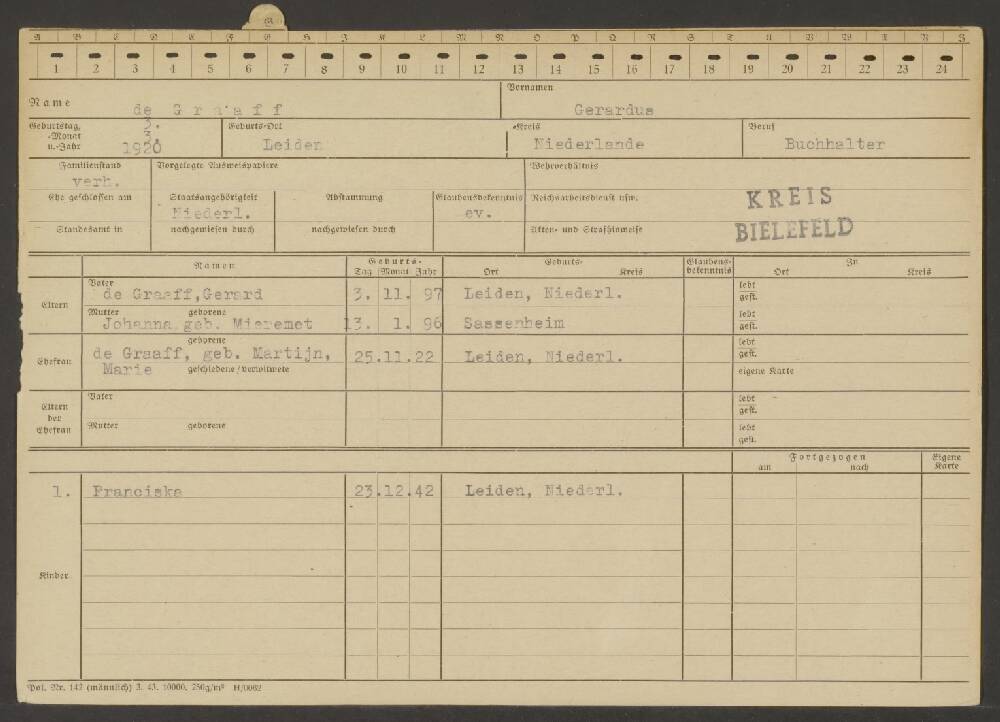 A B C D E F G H J K L M N O P Q R S T U V W X Z
1 2 3 4 5 6 7 8 9 10 11 12 13 14 15 16 17 18 19 20 21 22 23 24
Name de Graaff Vornamen Gerardus
Geburtstag, -Monat u.-Jahr 3. 3. 1920 Geburts-Ort Leiden -Kreis Niederlande Beruf Buchhalter
Familienstand verh. Vorgelegte Ausweispapiere Wehrverhältnis
Ehe geschlossen am Staatsangehörigkeit Niederl. Abstammung Glaubensbekenntnis ev. Reichsarbeitsdienst usw.
KREIS
BIELEFELD
Standesamt in nachgewiesen durch nachgewiesen durch Akten- und Strafhinweise
Namen Geburts- Tag Monat Jahr Geburts- Ort Kreis Glaubens-bekenntnis In Ort Kreis
Eltern Vater de Graaff, Gerard 3. 11. 97 Leiden, Niederl. lebt gest.
Mutter geborene Johanna geb. Mieremet 13. 1. 96 Sassenheim lebt gest.
Ehefrau geborene de Graaff, geb. Martijn, 25.11.22 Leiden, Niederl. lebt gest.
Marie geschiedene/verwitwete eigene Karte
Eltern der Ehefrau Vater lebt gest.
Mutter geborene lebt gest.
Fortgezogen am nach Eigene Karte
1. Franciska 23.12.42 Leiden, Niederl.
Kinder
Pol. Nr. 142 (männlich) 3. 43. 10000. 250g/m² H/0062